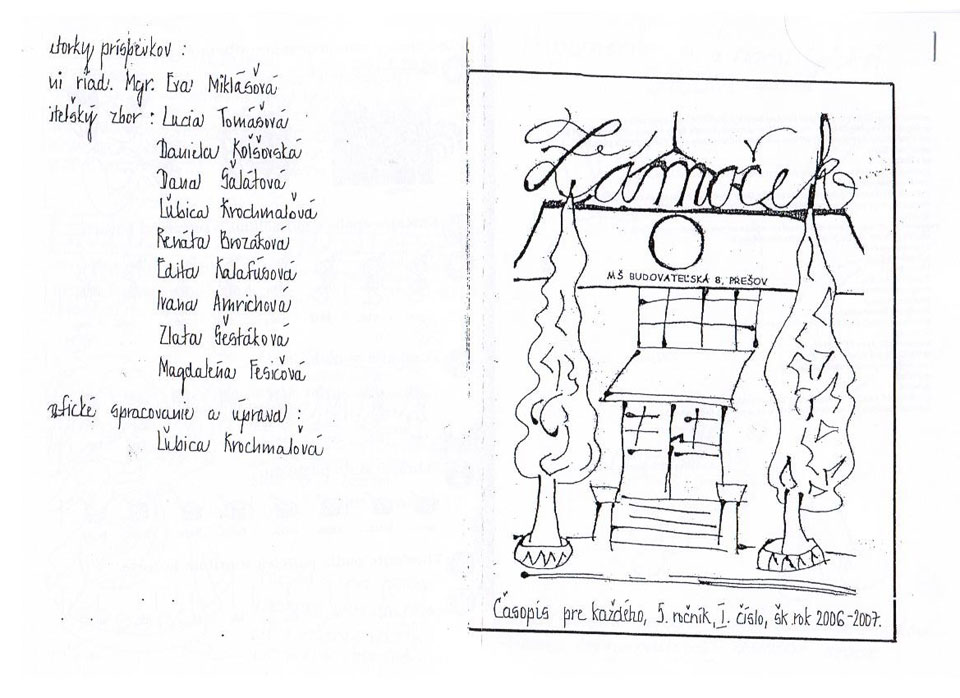 torky príspevkov :
ni riad. Mgr. Eva Miklášová
iteľský zbor : Lucia Tomášová
Daniela Kolšovská
Dana Šalátová
Ľubica Krochmaľová
Renáta Brozáková
Edita Kalafúsová
Ivana Amrichová
Zlata Šestáková
Magdaléna Fesičová
afické spracovanie a úprava :
Ľubica Krochmaľová
Zámoček
MŠ BUDOVATEĽSKÁ 8, PREŠOV
Časopis pre každého, 5. ročník, I. číslo, šk.rok 2006-2007.